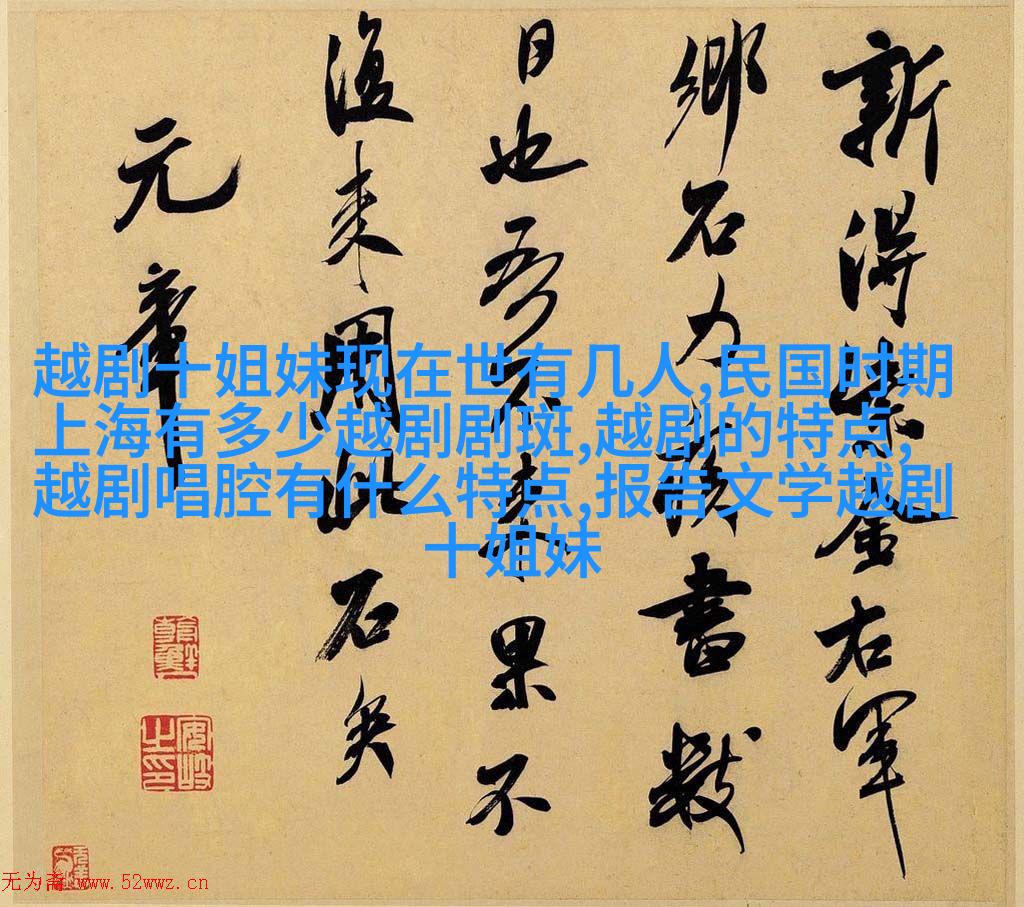 新得紫金右軍
鄉石力疾書數
日也吾不来果不
復来用此石矣
元章
越剧十姐妹现在世有几人,民国时期
上海有多少越剧剧斑,越剧的特点,
越剧唱腔有什么特点,报告文学越剧
十姐妹
无为斋 www.52wwz.cn